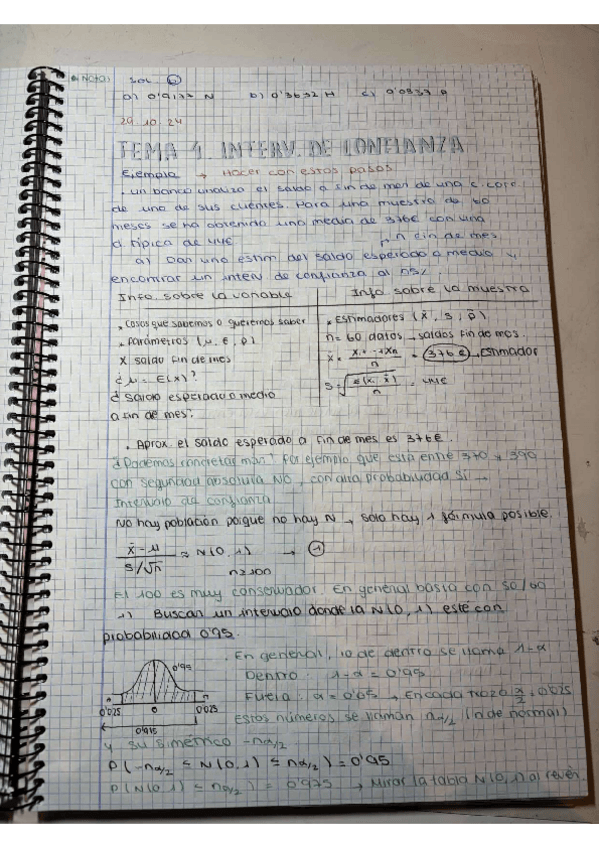 SOL 6
a) 0'9137 N b) 0'3632 H c) 0'0337 A
29.10.24
TEMA 1. INTERV. DE CONFIANZA
Ejemplo → Hacer con estos pasos
. Un banco analiza el saldo a fin de mes de una c. corr
de uno de sus clientes. Para una muestra de 60
meses se ha obtenido una media de 376€ con una
d típica de 44€
n fin de mes
a) Dar una estim del saldo esperado o medio y
encontrar un interv de confianza al 95%
Info sobre la variable
Info sobre la muestra
. Cosas que sabemos o queremos saber
. Parámetros (μ, σ, p)
X saldo fin de mes
¿ μ = E(X)?
d saldo esperado o medio
a fin de mes?
. Estimadores (x̄, s, p̂)
n = 60 datos → saldos fin de mes
x̄ = x₁ + ... + xn / n = 376€ → Estimador
s = √ Σ(xᵢ - x̄) / n = 44€
. Aprox el saldo esperado a fin de mes es 376€.
¿Podemos concretar más? Por ejemplo que está entre 370 y 390
con seguridad absoluta NO, con alta probabilidad SÍ →
Intervalo de confianza
No hay población porque no hay N → solo hay 1 fórmula posible.
x̄ - μ / s/√n ≈ N(0,1) → 1
n≥100
El 100 es muy conservador. En general basta con 50/60
1) Buscan un intervalo donde la N(0,1) esté con
probabilidad 0'95.
0'95
0'025 0 0'025
. En general, lo de dentro se llama 1-α
Dentro: 1-α = 0'95
Fuera: α = 0'05 → En cada trozo α/2 = 0'025
Estos números se llaman nα/2 (n de normal)
y su simétrico -nα/2
P(-nα/2 ≤ N(0,1) ≤ nα/2) = 0'95
P(N(0,1) ≤ nα/2) = 0'975 → Mirar la tabla N(0,1) al revés.